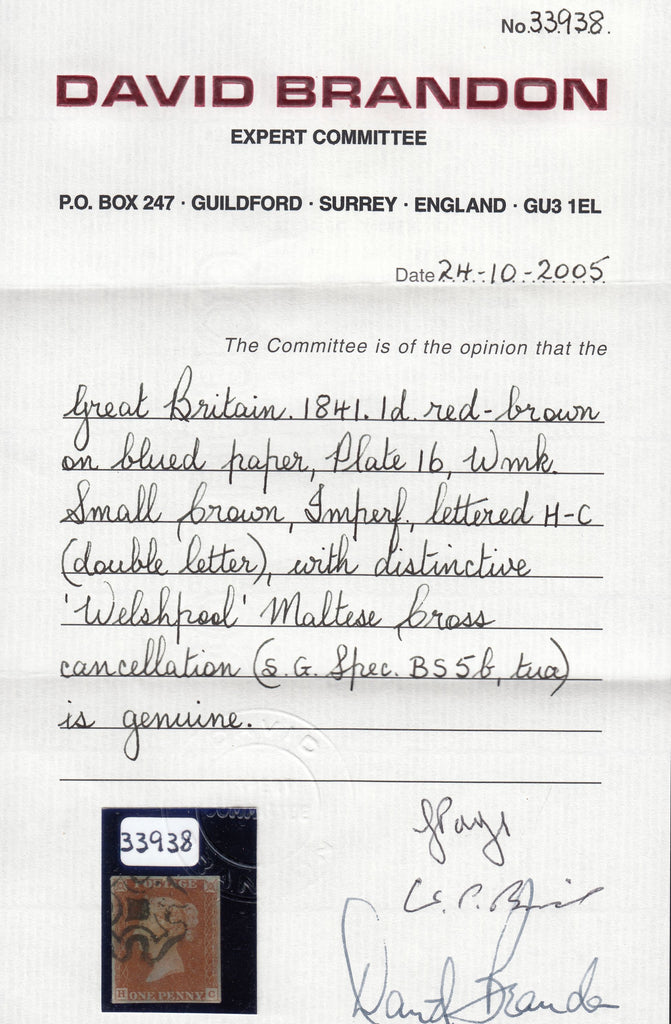 No. 33938.
DAVID BRANDON
EXPERT COMMITTEE
P.O. BOX 247 · GUILDFORD · SURREY · ENGLAND · GU3 1EL
Date 24-10-2005
The Committee is of the opinion that the
Great Britain. 1841. 1d. red-brown
on blued paper, Plate 16, Wmk.
Small Crown, Imperf, lettered H-C
(double letter), with distinctive
'Welshpool' Maltese Cross
cancellation (S.G. Spec. BS5b, tua)
is genuine.
DAVID
COMMITTEE
33938
POSTAGE
H ONE PENNY C
David Brandon